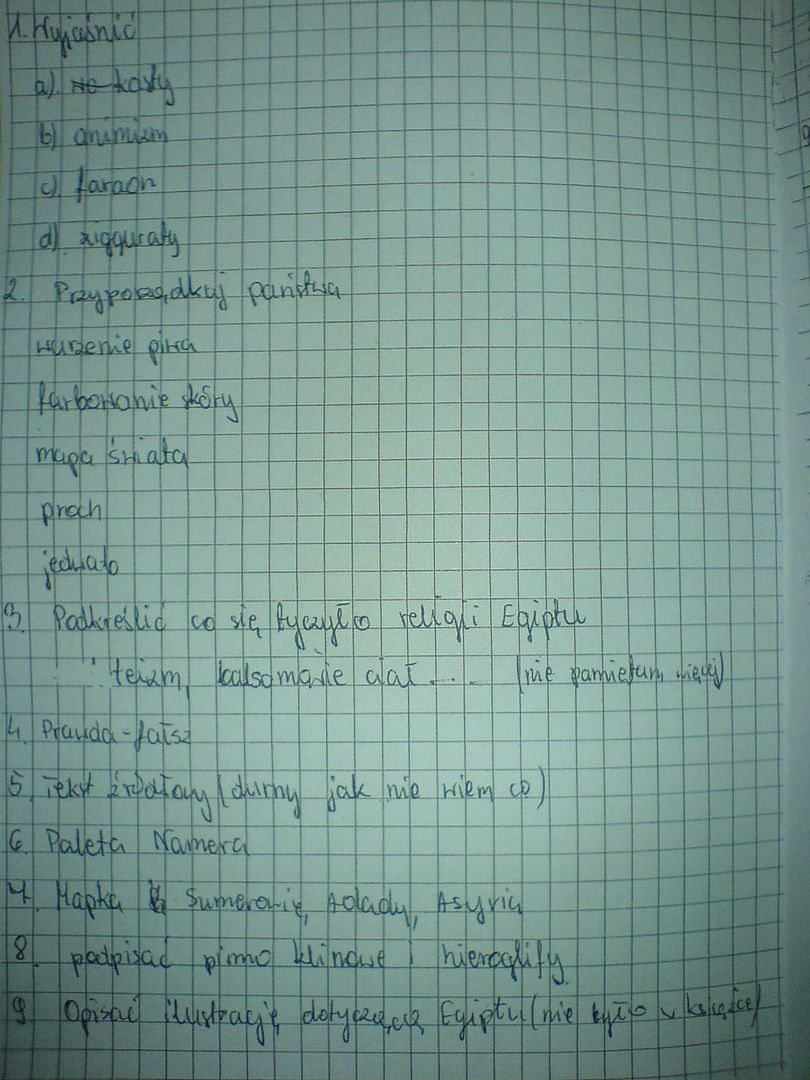 1. Wyjaśnić
a) kasty
b) animizm
c) faraon
d) zigguraty
2. Przyporządkuj państwa
warzenie piwa
farbowanie skóry
mapa świata
proch
jedwab
3. Podkreślić co się tyczyło religii Egiptu
teizm, balsamowanie ciał .... (nie pamiętam więcej)
4. Prawda - fałsz
5. Tekst źródłowy (durny jak nie wiem co)
6. Paleta Namera
7. Mapka Sumerowie, Akady, Asyria
8. podpisać pismo klinowe i hieroglify
9. Opisać ilustrację dotyczącą Egiptu (nie było w książce)